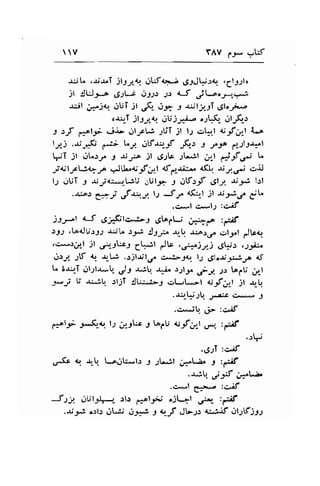 کتاب سوم ۳۸۷ ۱۱۷
«ارواح، به‌دنبال‌وی ضجه‌کنان به‌پرواز آمدند، مانند
شب‌پره‌هائی که در درون غاری هولناك از
صخره‌ای آویزانند و چون یکی از آنان به‌زمین افتد
دیگران یکباره صفیرزنان به‌پرواز آیند»
همهٔ این‌گونه ابیات را از آثار شاعران حذف خواهیم کرد و
امیدواریم هومر و دیگر گویندگان برما خشم نگیرند. زیرا
ما نمی‌گوئیم این اشعار عاری از هنرند و مردمان از آنها
لذت نمی‌برند بلکه معتقدیم‌که این‌گونه‌مطالب هرچه‌شاعرانه‌تر
ادا شوند برای کودکان و جوانان ناشایسته‌ترند و آنان را
مانع می‌شوند از اینکه مرگ را بربندگی ترجیح دهند.
گفت: راست است.
گفتم: هم‌چنین نام‌های وحشت‌انگیزی که امروز
به‌عالم اموات می‌دهند باید متروك شود مانند رودناله‌ها، رود
منفور، دنیای زیرزمینی، عالم اشباح وعناوینی از این‌دست،
که هرشنونده‌ای را به‌وحشت می‌اندازد. شاید به کار بردن
این نام‌ها در برخی موارد مفید باشد ولی پاسداران آیندهٔ ما
باید از این‌گونه احساسات وحشتناك آزاد باشند تا ترسو
و سست عنصر بارنیایند.
گفت: حق باتست.
گفتم: پس این‌گونه نام‌ها و عناوین را به‌یکسو خواهیم
نهاد.
گفت: آری.
گفتم: و مضامین اشعار و داستان‌ها باید به عکس
مضامین کنونی باشد.
گفت: صحیح است.
گفتم: یعنی اجازه نخواهیم داد پهلوانان بزرگ
روزگاران گذشته درحال گریه و شیون نشان داده شوند.